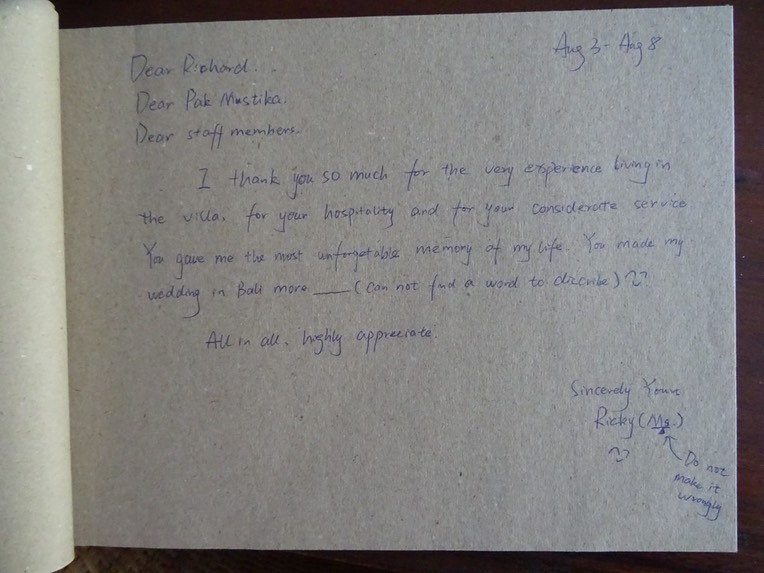 Aug 3 - Aug 8
Dear Richard..
Dear Pak Mustika.
Dear staff members.
I thank you so much for the very experience living in
the villa. for your hospitality and for your considerate service
You gave me the most unforgetable memory of my life. You made my
wedding in Bali more ___ (can not find a word to discribe)
All in all. highly appreciate.
Sincerely Yours
Ricky (Ms.)
Do not
make it
wrongly